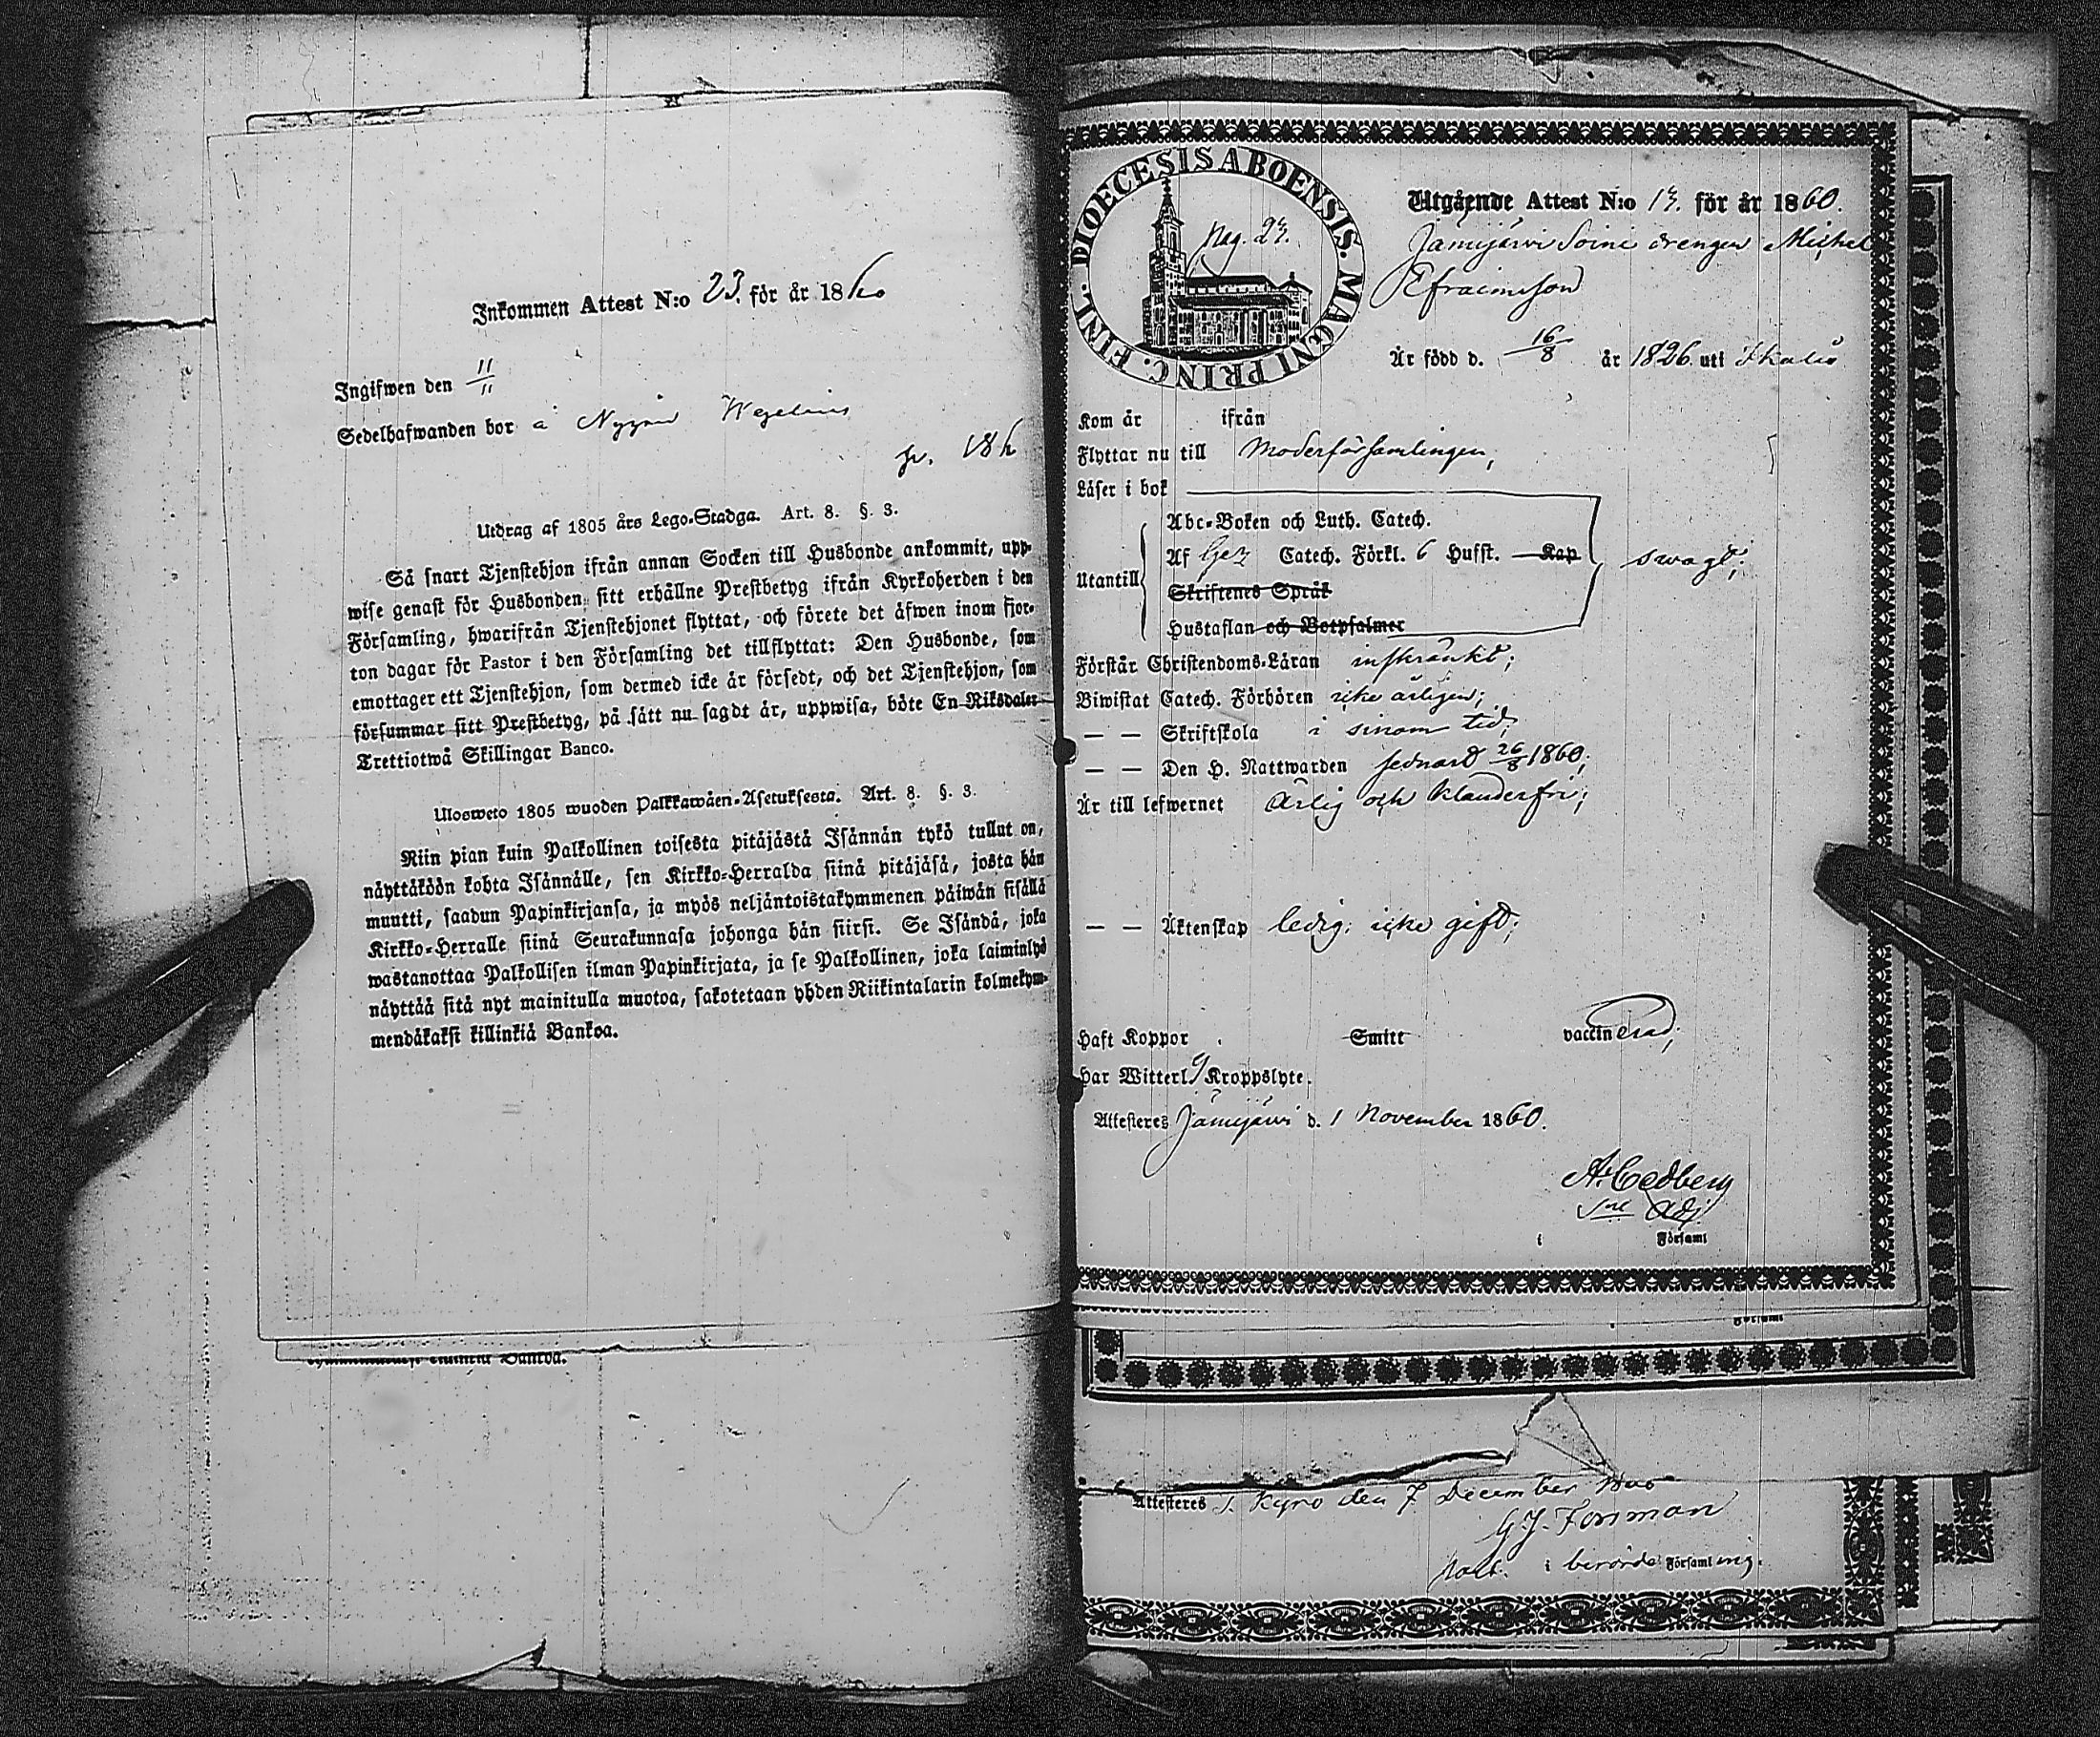 Inkommen Attest N:o 23. för år 1860
Ingifwen den 11/11
Sedelhafwanden bor å Nygård Wegelius
Utdrag af 1805 års Lego-Stadga. Art. 8. §. 3.
Så snart Tjenstehjon ifrån annan Socken till Husbonde ankommit, upp-
wise genast för Husbonden sitt erhållne Prestbetyg ifrån Kyrkoherden i den
Församling, hwarifrån Tjenstehjonet flyttat, och förete det äfwen inom fjor-
ton dagar för Pastor i den Församling det tillflyttat: Den Husbonde, som
emottager ett Tjenstehjon, som dermed icke är försedt, och det Tjenstehjon, som
försummar sitt Prestbetyg, på sätt nu sagdt är, uppwisa, böte En Riksdaler
Trettiotwå Skillingar Banco.
Ulosweto 1805 wuoden Palkkawäen-Asetuksesta. Art. 8. §. 3.
Niin pian kuin Palkollinen toisesta pitäjästä Isännän tykö tullut on,
näyttäköön kohta Isännälle, sen Kirkko-Herralda siinä pitäjäsä, josta hän
muutti, saadun Papinkirjansa, ja myös neljäntoistakymmenen päiwän sisällä
Kirkko-Herralle siinä Seurakunnasa johonga hän siirsi. Se Isändä, joka
wastanottaa Palkollisen ilman Papinkirjata, ja se Palkollinen, joka laiminlyö
näyttää sitä nyt mainitulla muotoa, sakotetaan yhden Riikintalarin kolmekym-
mendäkaksi killinkiä Bankoa.
DIOECESIS ABOENSIS. MAGNI PRINC. FINL.
pag. 23.
Utgående Attest N:o 13. för år 1860.
Jämijärvi Soini drengen Michel
Efraimsson
Är född d. 16/8 år 1826. uti Ikalis
Kom år ifrån
Flyttar nu till Moderförsamlingen,
Läser i bok
Utantill
Abc-Boken och Luth. Catech.
Af Gez Catech. Förkl. 6 Hufst. Kap
Skriftenes Språk
Hustaflan och Botpsalmer
svagt;
Förstår Christendoms-Läran inskränkt;
Biwistat Catech. Förhören icke årligen;
— — Skriftskola i sinom tid;
— — Den H. Nattwarden sednast 26/8 1860;
Är till lefwernet ärlig och klanderfri;
— — Äktenskap ledig; icke gift;
Haft Koppor Smitt vaccinerad;
Har Witterl. Kroppslyte.
Attesteres Jämijärvi d. 1 November 1860.
A. Cedberg
Adj.
i Församl
Attesteres T. Kyro den 7 December 1860
G. J. Forsman
Past. i berörde Församling.